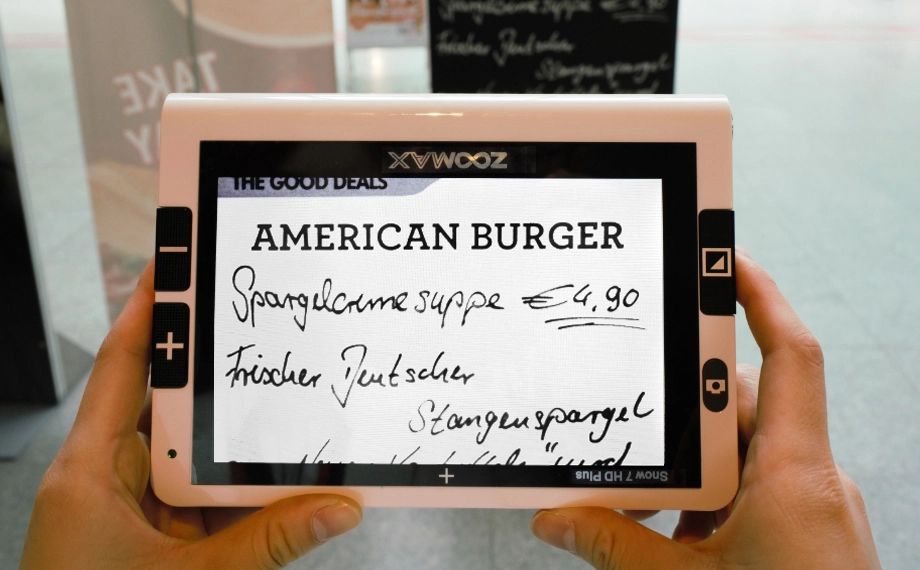 Spargelcremesuppe € 4,90
Frischer Deutscher
Stangenspargel
TAKE
ZOOMAX
THE GOOD DEALS
AMERICAN BURGER
Spargelcremesuppe € 4,90
Frischer Deutscher
Stangenspargel
und
Snow 7 HD Plus